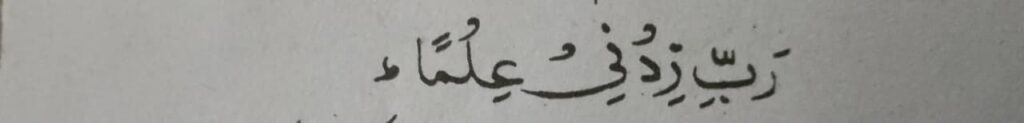 رَبِّ زِدْنِيْ عِلْمًا ط